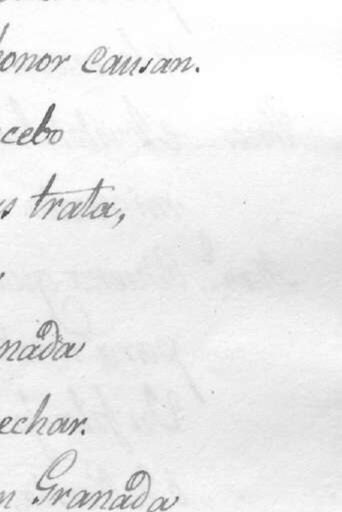 honor causan.
cebo
s trata,
nada
echar.
n Granada